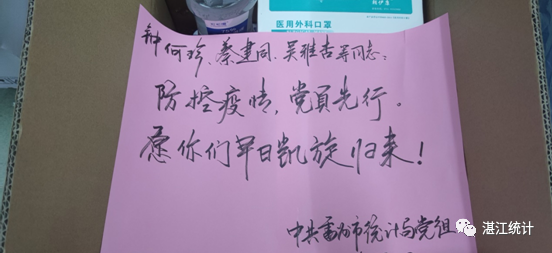 医用外科口罩
钟何珍、蔡建同、吴雅杏等同志：
防控疫情，党員先行。
愿你们早日凯旋归来！
中共雷州市统计局党组
湛江统计